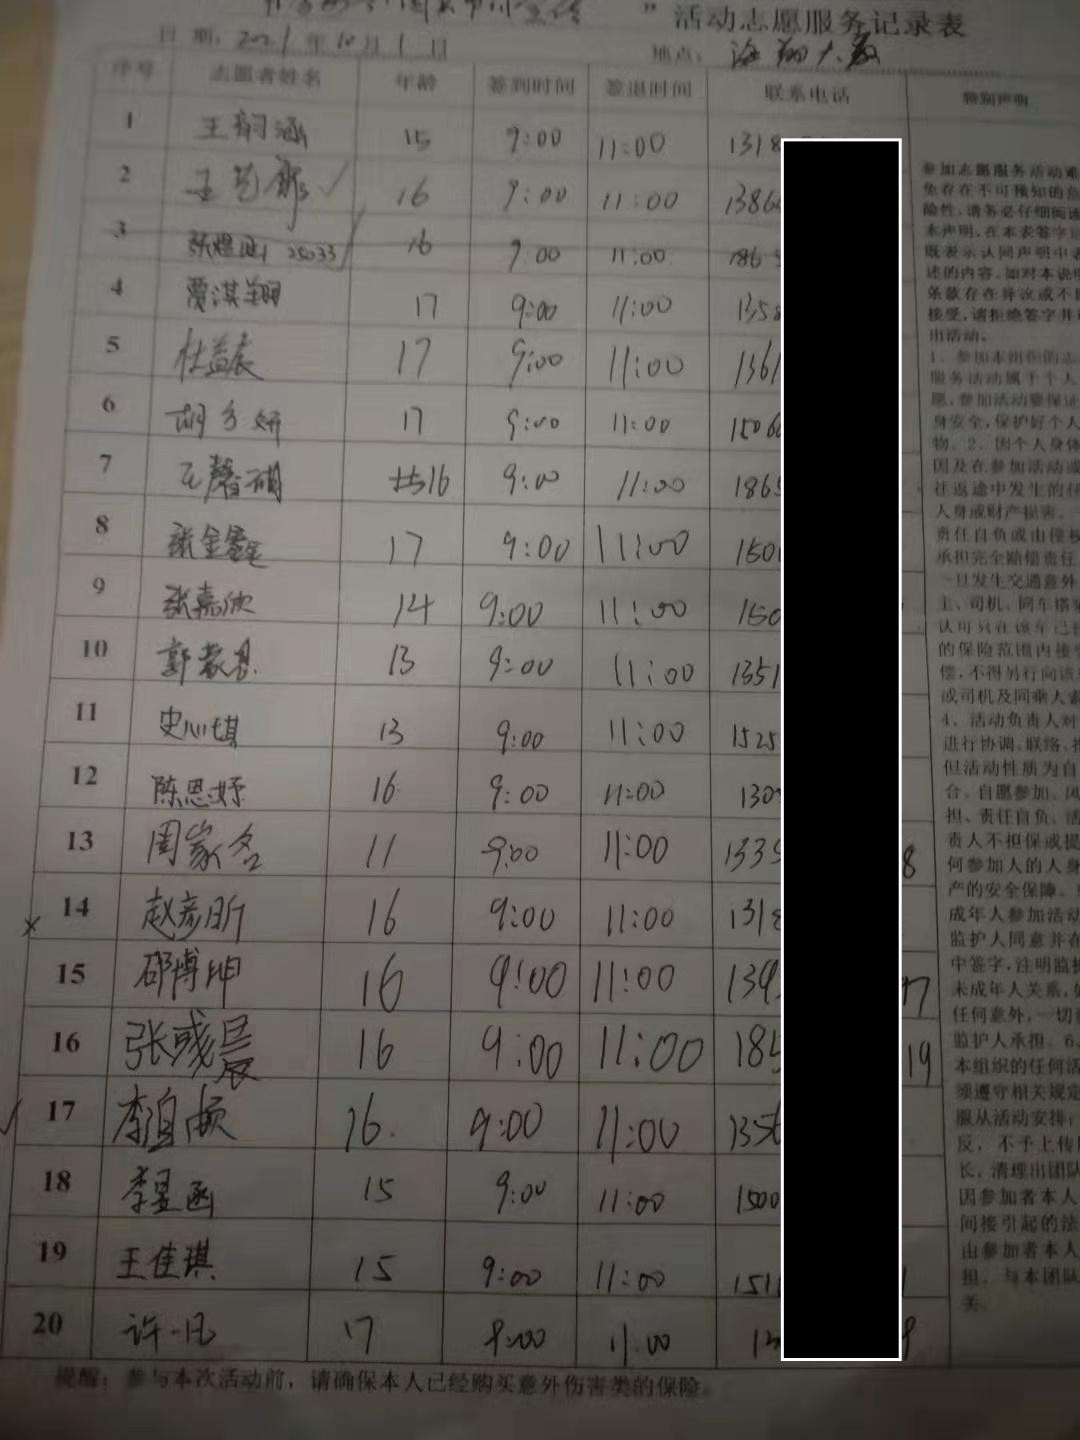 ”活动志愿服务记录表
日 期：2021年10月1日 地点：
序号 志愿者姓名 年龄 签到时间 签退时间 联系电话 特别声明
1 王韵涵 15 9:00 11:00 1318
2 王艺 16 9:00 11:00 1386
3 16 9:00 11:00 186
4 贾淇翔 17 9:00 11:00 135
5 杜益 17 9:00 11:00 1361
6 胡 妍 17 9:00 11:00 1506
7 王馨 16 9:00 11:00 186
8 张金 17 9:00 11:00 150
9 张嘉欣 14 9:00 11:00 150
10 郭 13 9:00 11:00 1351
11 史心琪 13 9:00 11:00 1525
12 陈思妤 16 9:00 11:00 130
13 周家名 11 9:00 11:00 133 8
14 赵彦昕 16 9:00 11:00 131
15 邵博坤 16 9:00 11:00 139 7
16 张 晨 16 9:00 11:00 18 19
17 李 16. 9:00 11:00 135
18 李昱函 15 9:00 11:00 1500
19 王佳琪 15 9:00 11:00 151
20 许一凡 17 11:00
参加志愿服务活动难
免存在不可预知的危
险性，请务必仔细阅读
本声明，在本表签字
既表示认同声明中
述的内容，如对本说明
条款存在异议或不
接受，请拒绝签字并
出活动。
1、参加本组织的志
服务活动属于个人
愿，参加活动要保证
身安全，保护好个人
物。2、因个人身体
因及在参加活动或
往返途中发生的任
人身或财产损害，
责任自负或由侵权
承担完全赔偿责任
一旦发生交通意外
主、司机、同车搭乘
认可只在该车已
的保险范围内接受
偿，不得另行向该
或司机及同乘人索
4、活动负责人对
进行协调、联络、
但活动性质为自
合、自愿参加、风
担、责任自负、活
责人不担保或提
何参加人的人身
产的安全保障。
成年人参加活动
监护人同意并在
中签字，注明监护
未成年人关系，
任何意外，一切
监护人承担。6、
本组织的任何活
须遵守相关规定
服从活动安排；
反，不予上传
长，清理出团队
因参加者本人
间接引起的法
由参加者本人
担，与本团队
关。
提醒：参与本次活动前，请确保本人已经购买意外伤害类的保险。